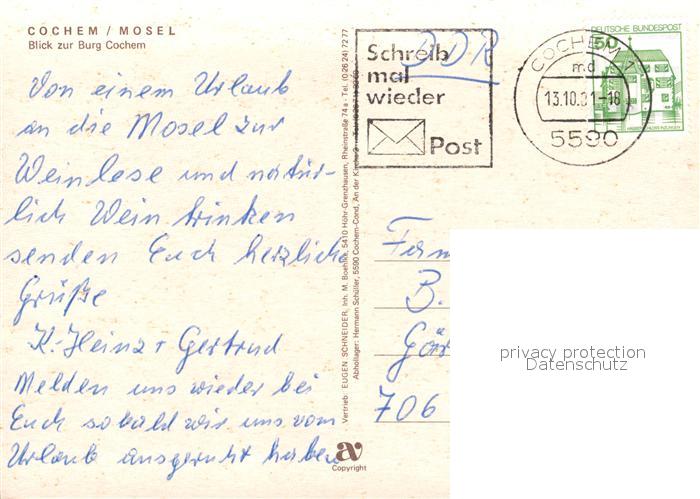 COCHEM / MOSEL
Blick zur Burg Cochem
Von einem Urlaub
an die Mosel zur
Weinlese und natür-
lich Wein trinken
senden Euch herzliche
Grüße
K.-Heinz + Gertrud
Melden uns wieder bei
Euch sobald wir uns vom
Urlaub ausgeruht haben
Vertrieb: EUGEN SCHNEIDER, Inh. M. Boehlke, 5410 Höhr-Grenzhausen, Rheinstraße 74 a · Tel. (0 26 24) 72 77
Abhollager: Hermann Schüller, 5590 Cochem-Cond, An der Kirche 2
av
Copyright
DDR
Schreib
mal
wieder
Post
COCHEM 1
md
13.10.81-18
5590
DEUTSCHE BUNDESPOST
50
Fam
B.
Gör
706
privacy protection
Datenschutz